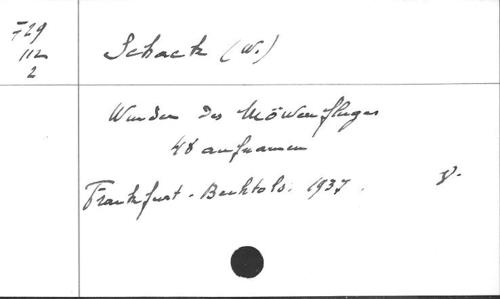 729
112
2
Schack (W.)
Wunder des Möwenfluges
48 aufnamen
Frankfurt. Bechtold. 1937.